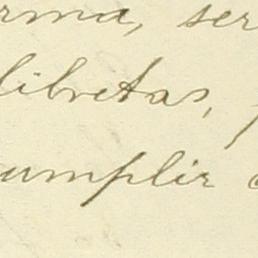 rma, ser
libretas,
umplir